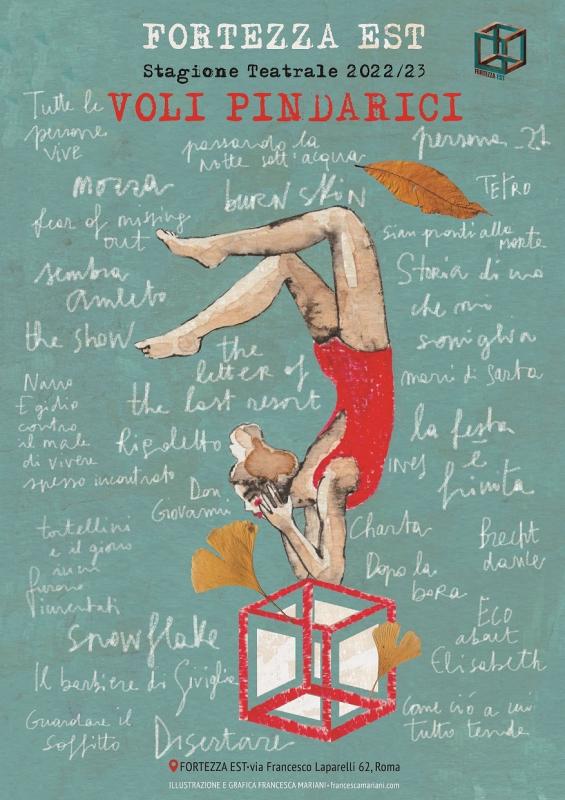 FORTEZZA EST
Stagione Teatrale 2022/23
VOLI PINDARICI
FORTEZZA EST
Tutte le
persone
vive
passando la
notte sott'acqua
persona_21
mozza
burn skin
TETRO
fear of missing
out
sian pronti alla
morte
sembra
amleto
Storia di uno
che mi
somiglia
the show
the
letter of
the last resort
mari di Sarta
Nano
Egidio
contro
il male
di vivere
spesso incontrato
Rigoletto
la festa
è
finita
INES
Don
Giovanni
tortellini
e il giorno
in cui
furono
inventati
Charta
Brecht
dance
Dopo la
bora
ECO
about
Elisabeth
snowflake
Il barbiere di Siviglia
Guardare il
soffitto
Disertare
come ciò a cui
tutto tende
FORTEZZA EST•via Francesco Laparelli 62, Roma
ILLUSTRAZIONE E GRAFICA FRANCESCA MARIANI•francescamariani.com